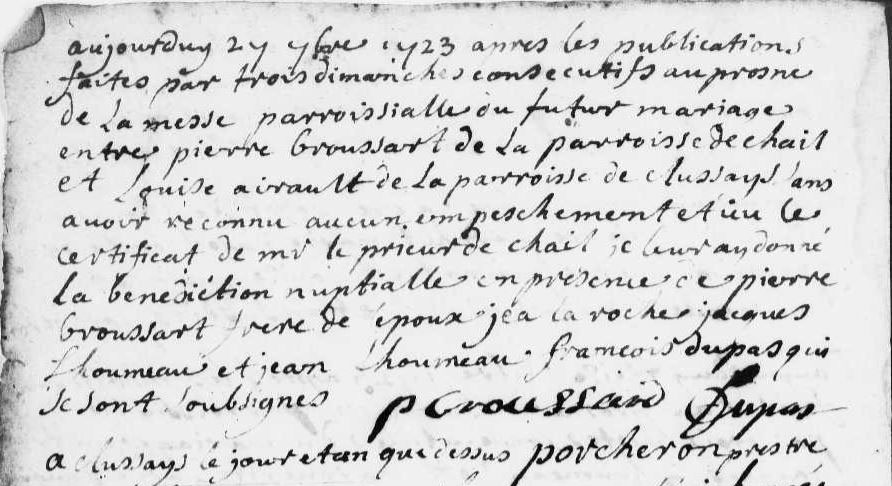 aujourduy 27 7bre 1723 apres les publications
faites par trois dimanches consecutifs au prosne
de La messe parroissialle du futur mariage
entre pierre broussart de La parroisse de chail
et Louise airault de La parroisse de clussays sans
avoir reconnu aucun empeschement et veu le
certificat de mr le prieur de chail je leur ay donné
la benediction nuptialle en presence de pierre
broussart frere de époux jea la roche jacques
Lhoumeau et jean Lhoumeau francois dupas qui
se sont soubsignes P Broussard Dupas
a clussays le jour et an que dessus porcheron prestre